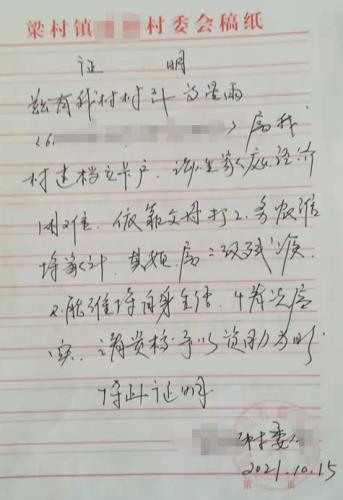 梁村镇 村委会稿纸
证 明
兹有我村村计 星雨
( ) 属我
村建档立卡户,该生家庭经济
困难,依靠父母打工务农维
持家计,其姐属二级残疾,
不能维持自身生活,情况属
实,请贵校予以资助为盼
特此证明
村委
2021.10.15